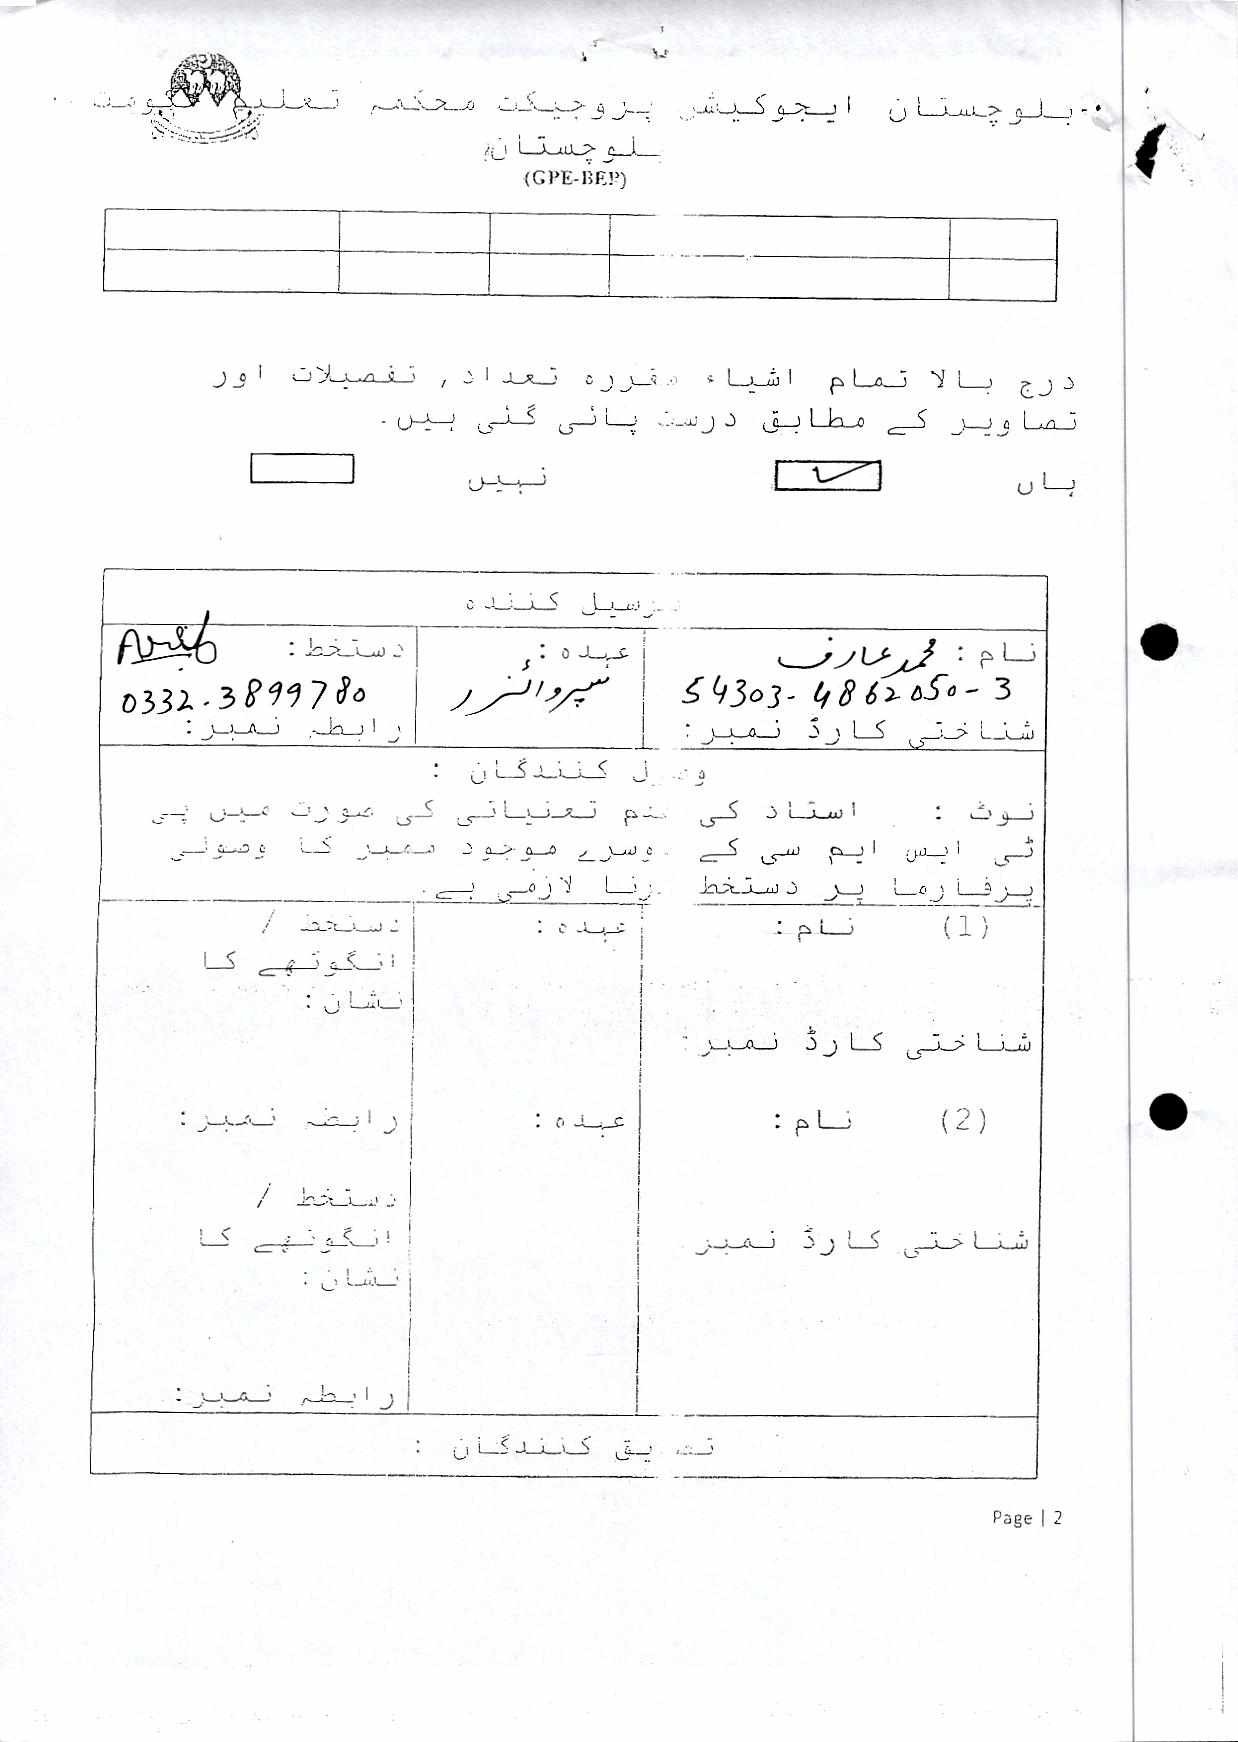 بلوچستان ایجوکیشن پروجیکٹ محکمہ تعلیم حکومت
بلوچستان
(GPE-BEP)
درج بالا تمام اشیاء مقررہ تعداد, تفصیلات اور
تصاویر کے مطابق درست پائی گئی ہیں.
ہاں نہیں
ترسیل کنندہ
نام : محمد عارف عہدہ : دستخط : Arif
54303-4862050-3 سپروائزر 0332-3899780
شناختی کارڈ نمبر : رابطہ نمبر :
وصول کنندگان :
نوٹ : استاد کی عدم تعنیاتی کی صورت میں پی
ٹی ایس ایم سی کے دوسرے موجود ممبر کا وصولی
پرفارما پر دستخط کرنا لازمی ہے.
(1) نام : عہدہ : دستخط /
انگوٹھے کا
نشان :
شناختی کارڈ نمبر :
(2) نام : عہدہ : رابطہ نمبر :
دستخط /
شناختی کارڈ نمبر انگوٹھے کا
نشان :
رابطہ نمبر :
تصدیق کنندگان :
Page | 2